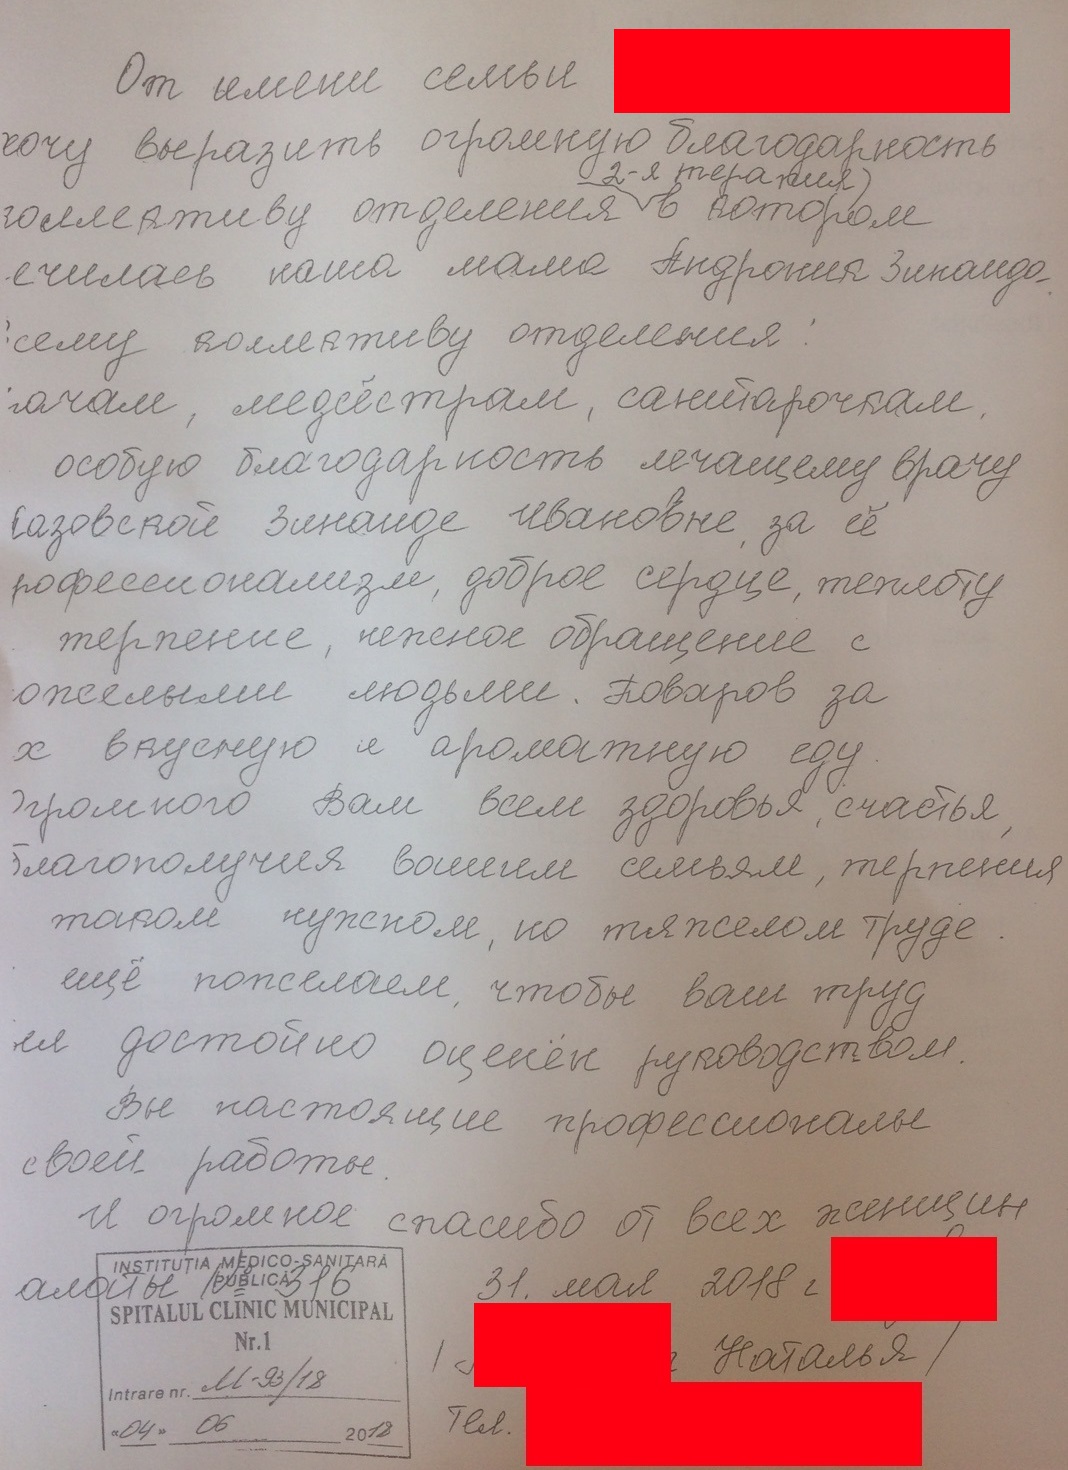 От имени семьи
хочу выразить огромную благодарность
(2-я терапия)
коллективу отделения в котором
ечилась наша мама Андроник Зинаида.
сему коллективу отделения:
рачам, медсёстрам, санитарочкам,
особую благодарность лечащему врачу
Казовской Зинаиде Ивановне, за её
рофессионализм, доброе сердце, теплоту
терпение, нежное обращение с
ожелыми людьми. Поваров за
х вкусную и ароматную еду.
Огромного Вам всем здоровья, счастья,
благополучия вашим семьям, терпения
таком нужном, но тяжелом труде.
ещё пожелаем, чтобы ваш труд
ыл достойно оценён руководством.
Вы настоящие профессионалы
своей работы.
И огромное спасибо от всех женщин
алаты № 316 31. мая 2018 г
Наталья/
Тел.
INSTITUȚIA MEDICO-SANITARĂ
PUBLICĂ
SPITALUL CLINIC MUNICIPAL
Nr.1
Intrare nr. M-93/18
«04» 06 2018